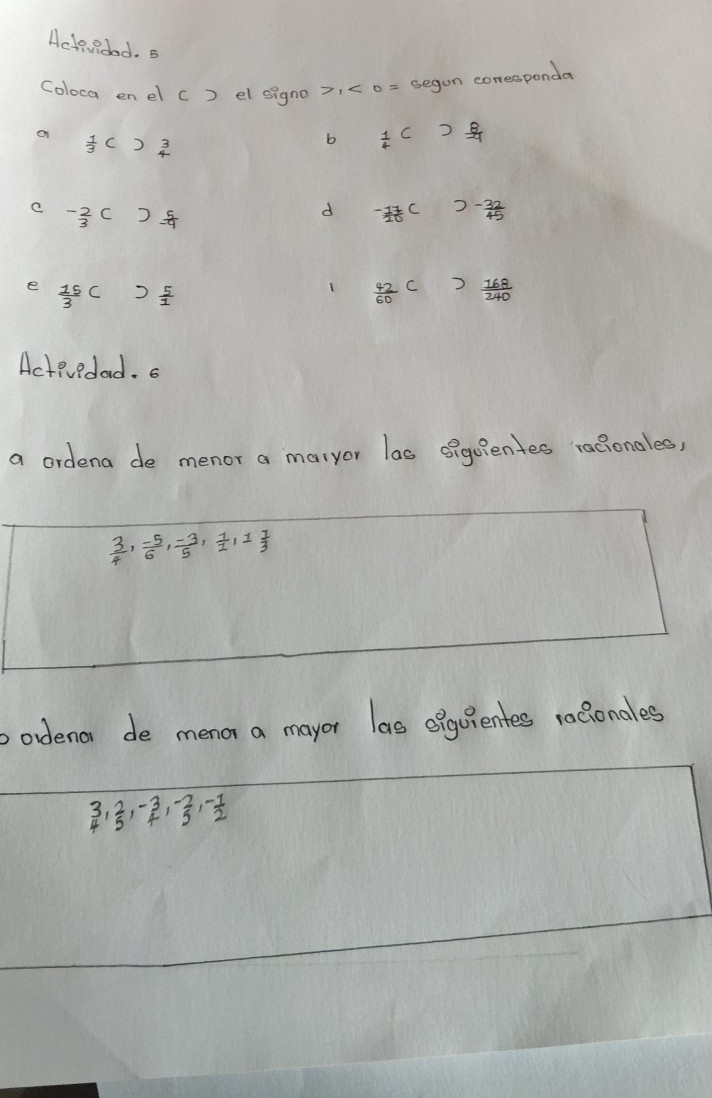 Actividad. 5
Coloca en el ( ) el signo >, < o = segun corresponda
a 1/3 ( ) 3/4 b 1/4 ( )
c -2/3 ( ) d ( ) -32/45
e 15/3 ( ) 5/1 1 42/60 ( ) 168/240
Actividad. 6
a ordena de menor a maryor las siguientes racionales,
3/4, -5/6, -3/5, 1/1, 1
ordena de menor a mayor las siguientes racionales
3/4, 2/5, -3/4, -2/5, -1/2